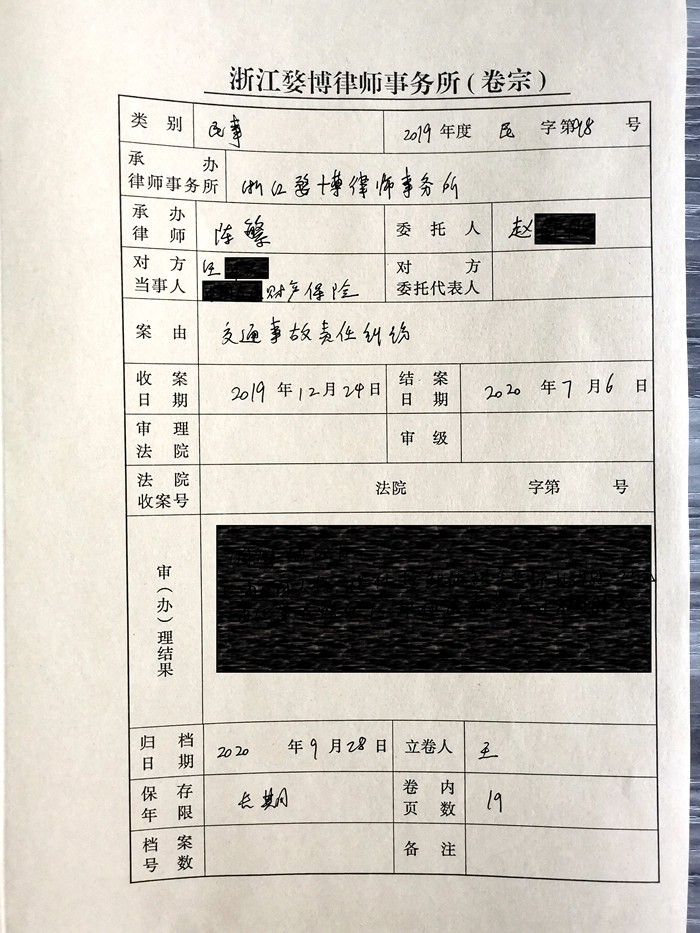 浙江婺博律师事务所(卷宗)
类别 民事 2019年度 民 字第98号
承办律师事务所 浙江婺博律师事务所
承办律师 陈繁 委托人 赵
对方当事人 汪 财产保险 对方委托代表人
案由 交通事故责任纠纷
收案日期 2019年12月24日 结案日期 2020年7月6日
审理法院 审级
法院收案号 法院 字第 号
审(办)理结果
归档日期 2020 年9月28日 立卷人 王
保存年限 长期 卷内页数 19
档案号数 备注